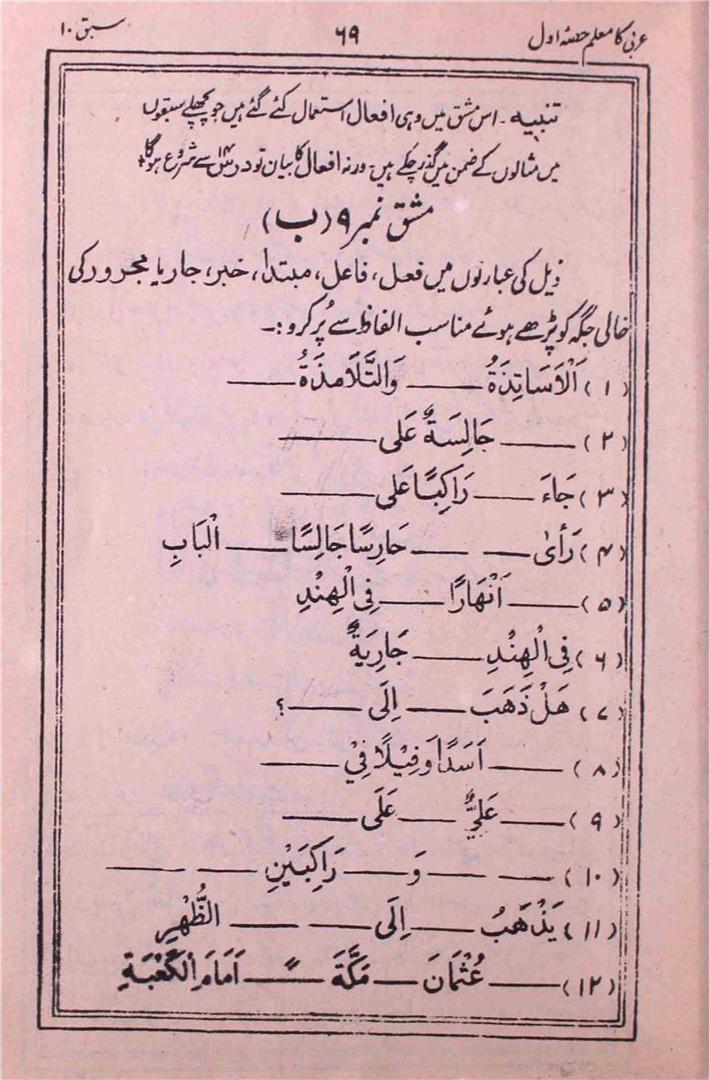 عربی کا معلم حصہ اول ۶۹ سبق ۱۰
تنبیہ۔ اس مشق میں وہی افعال استعمال کئے گئے ہیں جو پچھلے سبقوں
میں مثالوں کے ضمن میں گذر چکے ہیں۔ ورنہ افعال کا بیان تو درس ۱۴ سے شروع ہوگا
مشق نمبر ۹ (ب)
ذیل کی عبارتوں میں فعل، فاعل، مبتدا، خبر، جار یا مجرور کی
خالی جگہ کو پڑھے ہوئے مناسب الفاظ سے پُر کرو:۔
(۱) اَلْاَسَاتِذَةُ ــــــ وَالتَّلَامِذَةُ ــــــ
(۲) ــــــ جَالِسَةٌ عَلی ــــــ
(۳) جَاءَ ــــــ رَاكِبًا عَلی ــــــ
(۴) رَأیٰ ــــــ ــــــ حَارِسًا جَالِسًا ــــــ الْبَابِ
(۵) ــــــ اَنْهَارًا ــــــ فِی الْهِنْدِ
(۶) فِی الْهِنْدِ ــــــ جَارِيَةٌ
(۷) هَلْ ذَهَبَ ــــــ اِلَی ــــــ ؟
(۸) ــــــ اَسَدًا وَفِيْلًا فِيْ ــــــ
(۹) ــــــ عَلِيٌّ ــــــ عَلَی ــــــ
(۱۰) ــــــ ــــــ وَ ــــــ رَاكِبَيْنِ ــــــ ــــــ
(۱۱) يَذْهَبُ ــــــ اِلَی ــــــ ــــــ الظُّهْرِ
(۱۲) ــــــ عُثْمَانَ ــــــ مَكَّةَ ــــــً اَمَامَ الْكَعْبَةِ